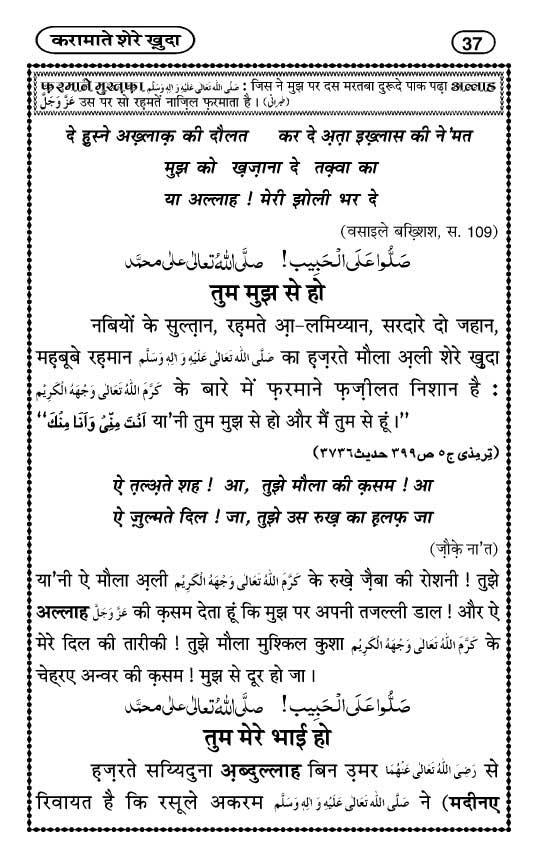 करामाते शेरे ख़ुदा
37
फ़रमाने मुस्तफ़ा صَلَّى اللهُ تَعَالٰى عَلَيْهِ وَاٰلِهٖ وَسَلَّم : जिस ने मुझ पर दस मरतबा दुरूदे पाक पढ़ा अल्लाह
عَزَّ وَجَلَّ उस पर सो रहमतें नाज़िल फ़रमाता है । (طبرانی)
दे हुस्ने अख़्लाक़ की दौलत कर दे अ़ता इख़्लास की ने'मत
मुझ को ख़ज़ाना दे तक़्वा का
या अल्लाह ! मेरी झोली भर दे
(वसाइले बख़्शिश, स. 109)
صَلُّوا عَلَى الْحَبِيب! صلَّى اللهُ تعالٰى على محمَّد
तुम मुझ से हो
नबियों के सुल्त़ान, रह़मते आ़-लमिय्यान, सरदारे दो जहान,
मह़बूबे रह़मान صَلَّى اللهُ تَعَالٰى عَلَيْهِ وَاٰلِهٖ وَسَلَّم का ह़ज़रते मौला अ़ली शेरे ख़ुदा
كَرَّمَ اللهُ تَعَالٰى وَجْهَهُ الْكَرِيْم के बारे में फ़रमाने फ़ज़ीलत निशान है :
“اَنْتَ مِنِّىْ وَاَنَا مِنْكَ या'नी तुम मुझ से हो और मैं तुम से हूं ।”
(تِرمِذی ج۵ ص۳۹۹ حدیث۳۷۳۶)
ऐ त़ल्अ़ते शह ! आ, तुझे मौला की क़सम ! आ
ऐ ज़ुल्मते दिल ! जा, तुझे उस रुख़ का ह़लफ़ जा
(ज़ौक़े ना'त)
या'नी ऐ मौला अ़ली كَرَّمَ اللهُ تَعَالٰى وَجْهَهُ الْكَرِيْم के रुख़े ज़ैबा की रोशनी ! तुझे
अल्लाह عَزَّ وَجَلَّ की क़सम देता हूं कि मुझ पर अपनी तजल्ली डाल ! और ऐ
मेरे दिल की तारीकी ! तुझे मौला मुश्किल कुशा كَرَّمَ اللهُ تَعَالٰى وَجْهَهُ الْكَرِيْم के
चेहरए अन्वर की क़सम ! मुझ से दूर हो जा ।
صَلُّوا عَلَى الْحَبِيب! صلَّى اللهُ تعالٰى على محمَّد
तुम मेरे भाई हो
ह़ज़रते सय्यिदुना अ़ब्दुल्लाह बिन उ़मर رَضِىَ اللهُ تَعَالٰى عَنْهُمَا से
रिवायत है कि रसूले अकरम صَلَّى اللهُ تَعَالٰى عَلَيْهِ وَاٰلِهٖ وَسَلَّم ने (मदीनए